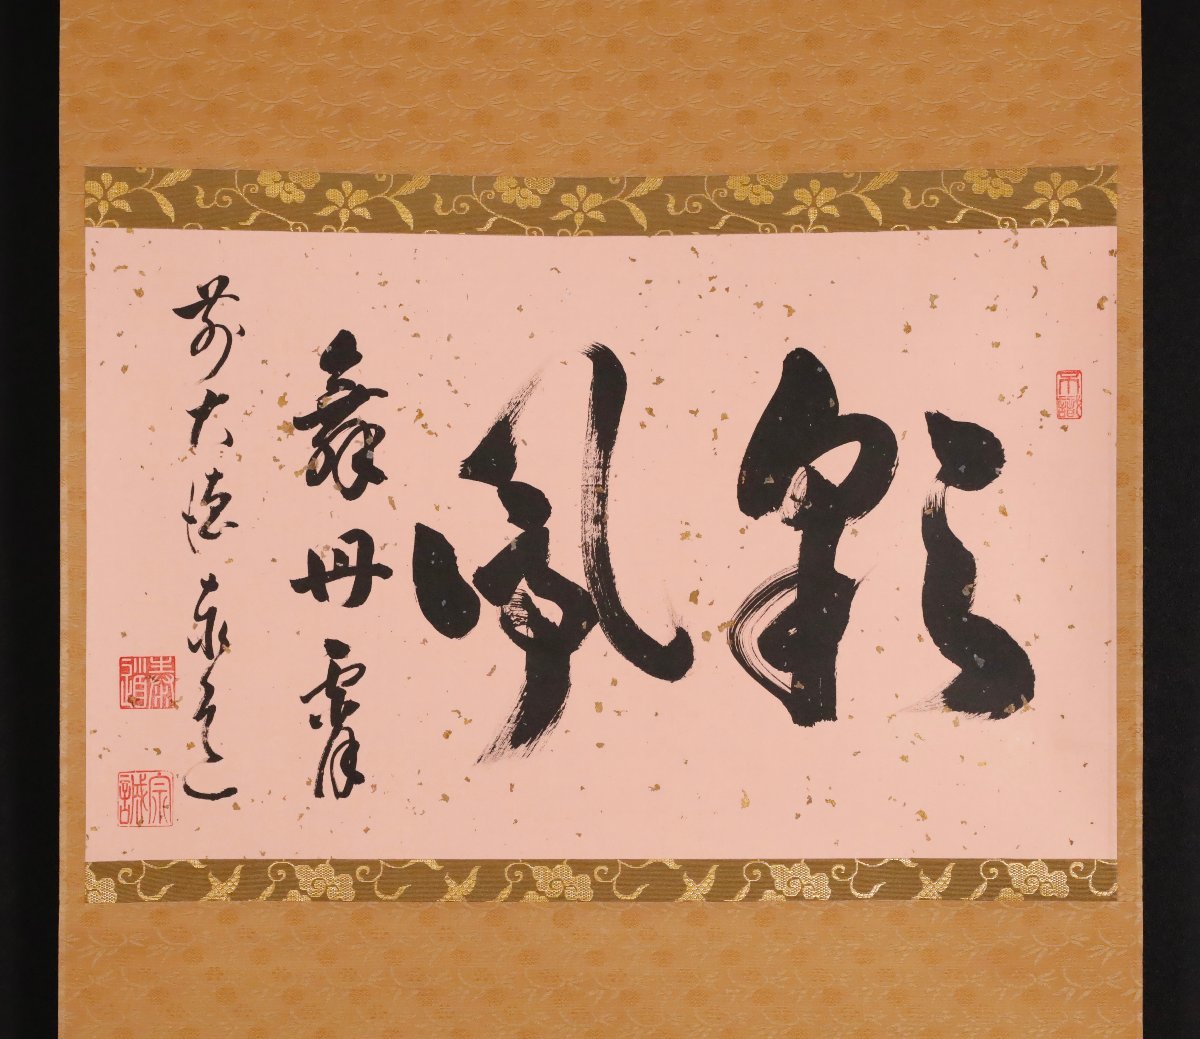 彩鳳
舞丹霄
前大徳泰道
不識
泰道
宗誠